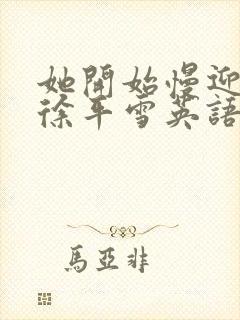 她開始慢迎
徐平雪英語
馬亞非